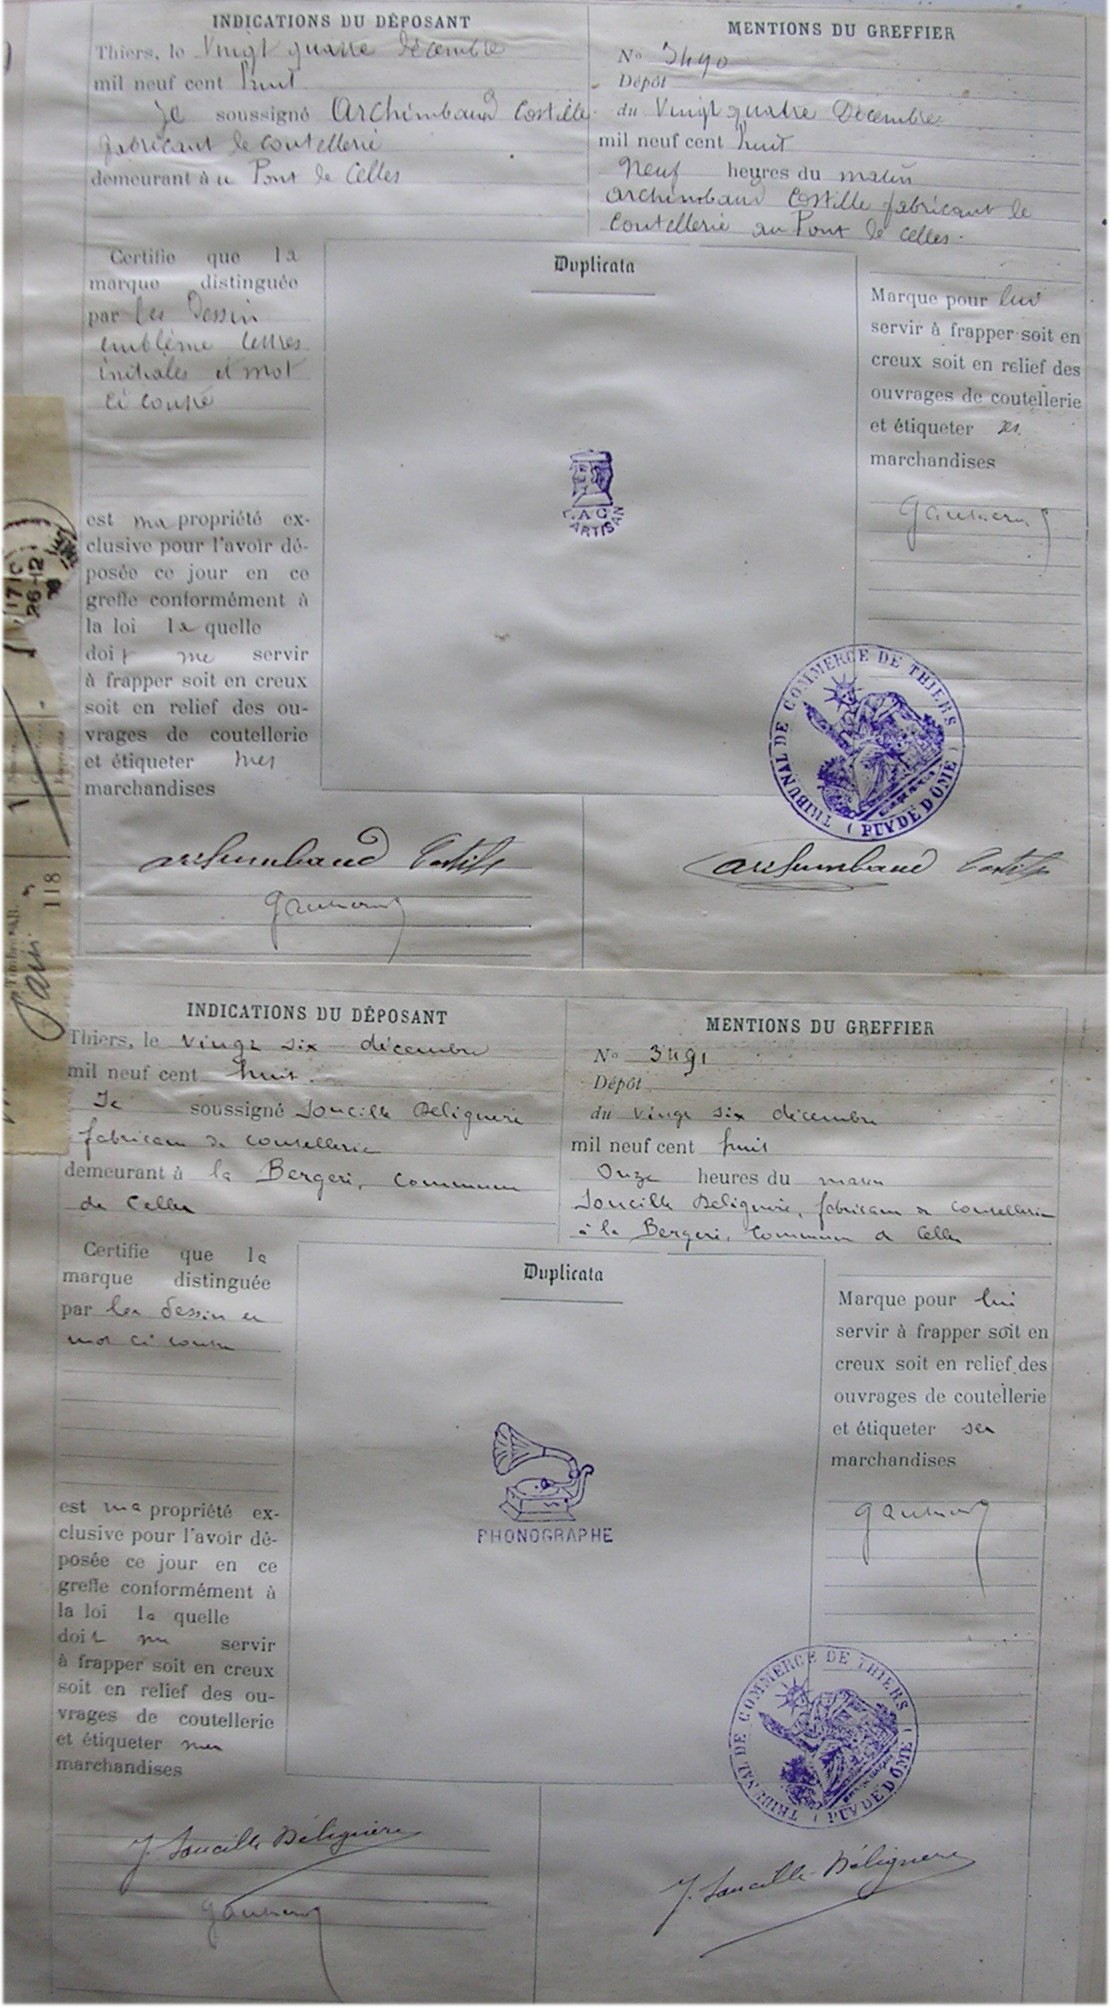 INDICATIONS DU DÉPOSANT
Thiers, le Vingt quatre Décembre
mil neuf cent huit
Je soussigné Archimbaud Costille
fabricant de coutellerie
demeurant à u Pont de Celles
MENTIONS DU GREFFIER
No 3490
Dépôt
du Vingt quatre Décembre
mil neuf cent huit
Neuf heures du matin
archimbaud Costille fabricant de
coutellerie au Pont de Celles.
Certifie que la
marque distinguée
par les Dessin
emblème lettres
initiales et mot
ci coupé
est ma propriété ex-
clusive pour l'avoir dé-
posée ce jour en ce
greffe conformément à
la loi laquelle
doit me servir
à frapper soit en creux
soit en relief des ou-
vrages de coutellerie
et étiqueter mes
marchandises
Duplicata
AC
L'ARTISAN
Marque pour lui
servir à frapper soit en
creux soit en relief des
ouvrages de coutellerie
et étiqueter ses
marchandises
TRIBUNAL DE COMMERCE DE THIERS
(PUY DE DÔME)
archimbaud Costille
archimbaud Costille
26-12
118
INDICATIONS DU DÉPOSANT
Thiers, le vingt six décembre
mil neuf cent huit.
Je soussigné Soucille Béliguere
fabricant de coutellerie
demeurant à la Bergere, commune
de Celles
MENTIONS DU GREFFIER
No 3491
Dépôt
du vingt six décembre
mil neuf cent huit
Onze heures du matin
Soucille Béliguere, fabricant de coutellerie
à la Bergere, commune de Celles
Certifie que la
marque distinguée
par les dessin et
mot ci contre
est ma propriété ex-
clusive pour l'avoir dé-
posée ce jour en ce
greffe conformément à
la loi laquelle
doit me servir
à frapper soit en creux
soit en relief des ou-
vrages de coutellerie
et étiqueter mes
marchandises
Duplicata
PHONOGRAPHE
Marque pour lui
servir à frapper soit en
creux soit en relief des
ouvrages de coutellerie
et étiqueter ses
marchandises
TRIBUNAL DE COMMERCE DE THIERS
(PUY DE DÔME)
J. Soucille Béliguere
J. Soucille-Béliguere